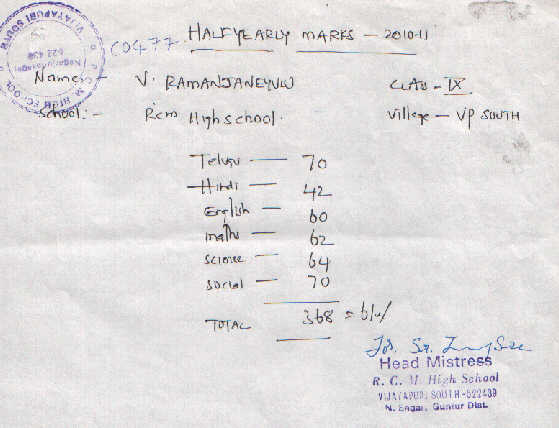 C0477 HALFYEARLY MARKS - 2010-11
Name:- V. RAMANJANEYULU CLASS - IX
School:- Rcm High school. Village - VP SOUTH
Telugu - 70
Hindi - 42
English - 60
maths - 62
science - 64
social - 70
TOTAL 368 = 61%
Head Mistress
R. C. M. High School
VIJAYAPURI SOUTH-522439
N. Sagar, Guntur Dist.